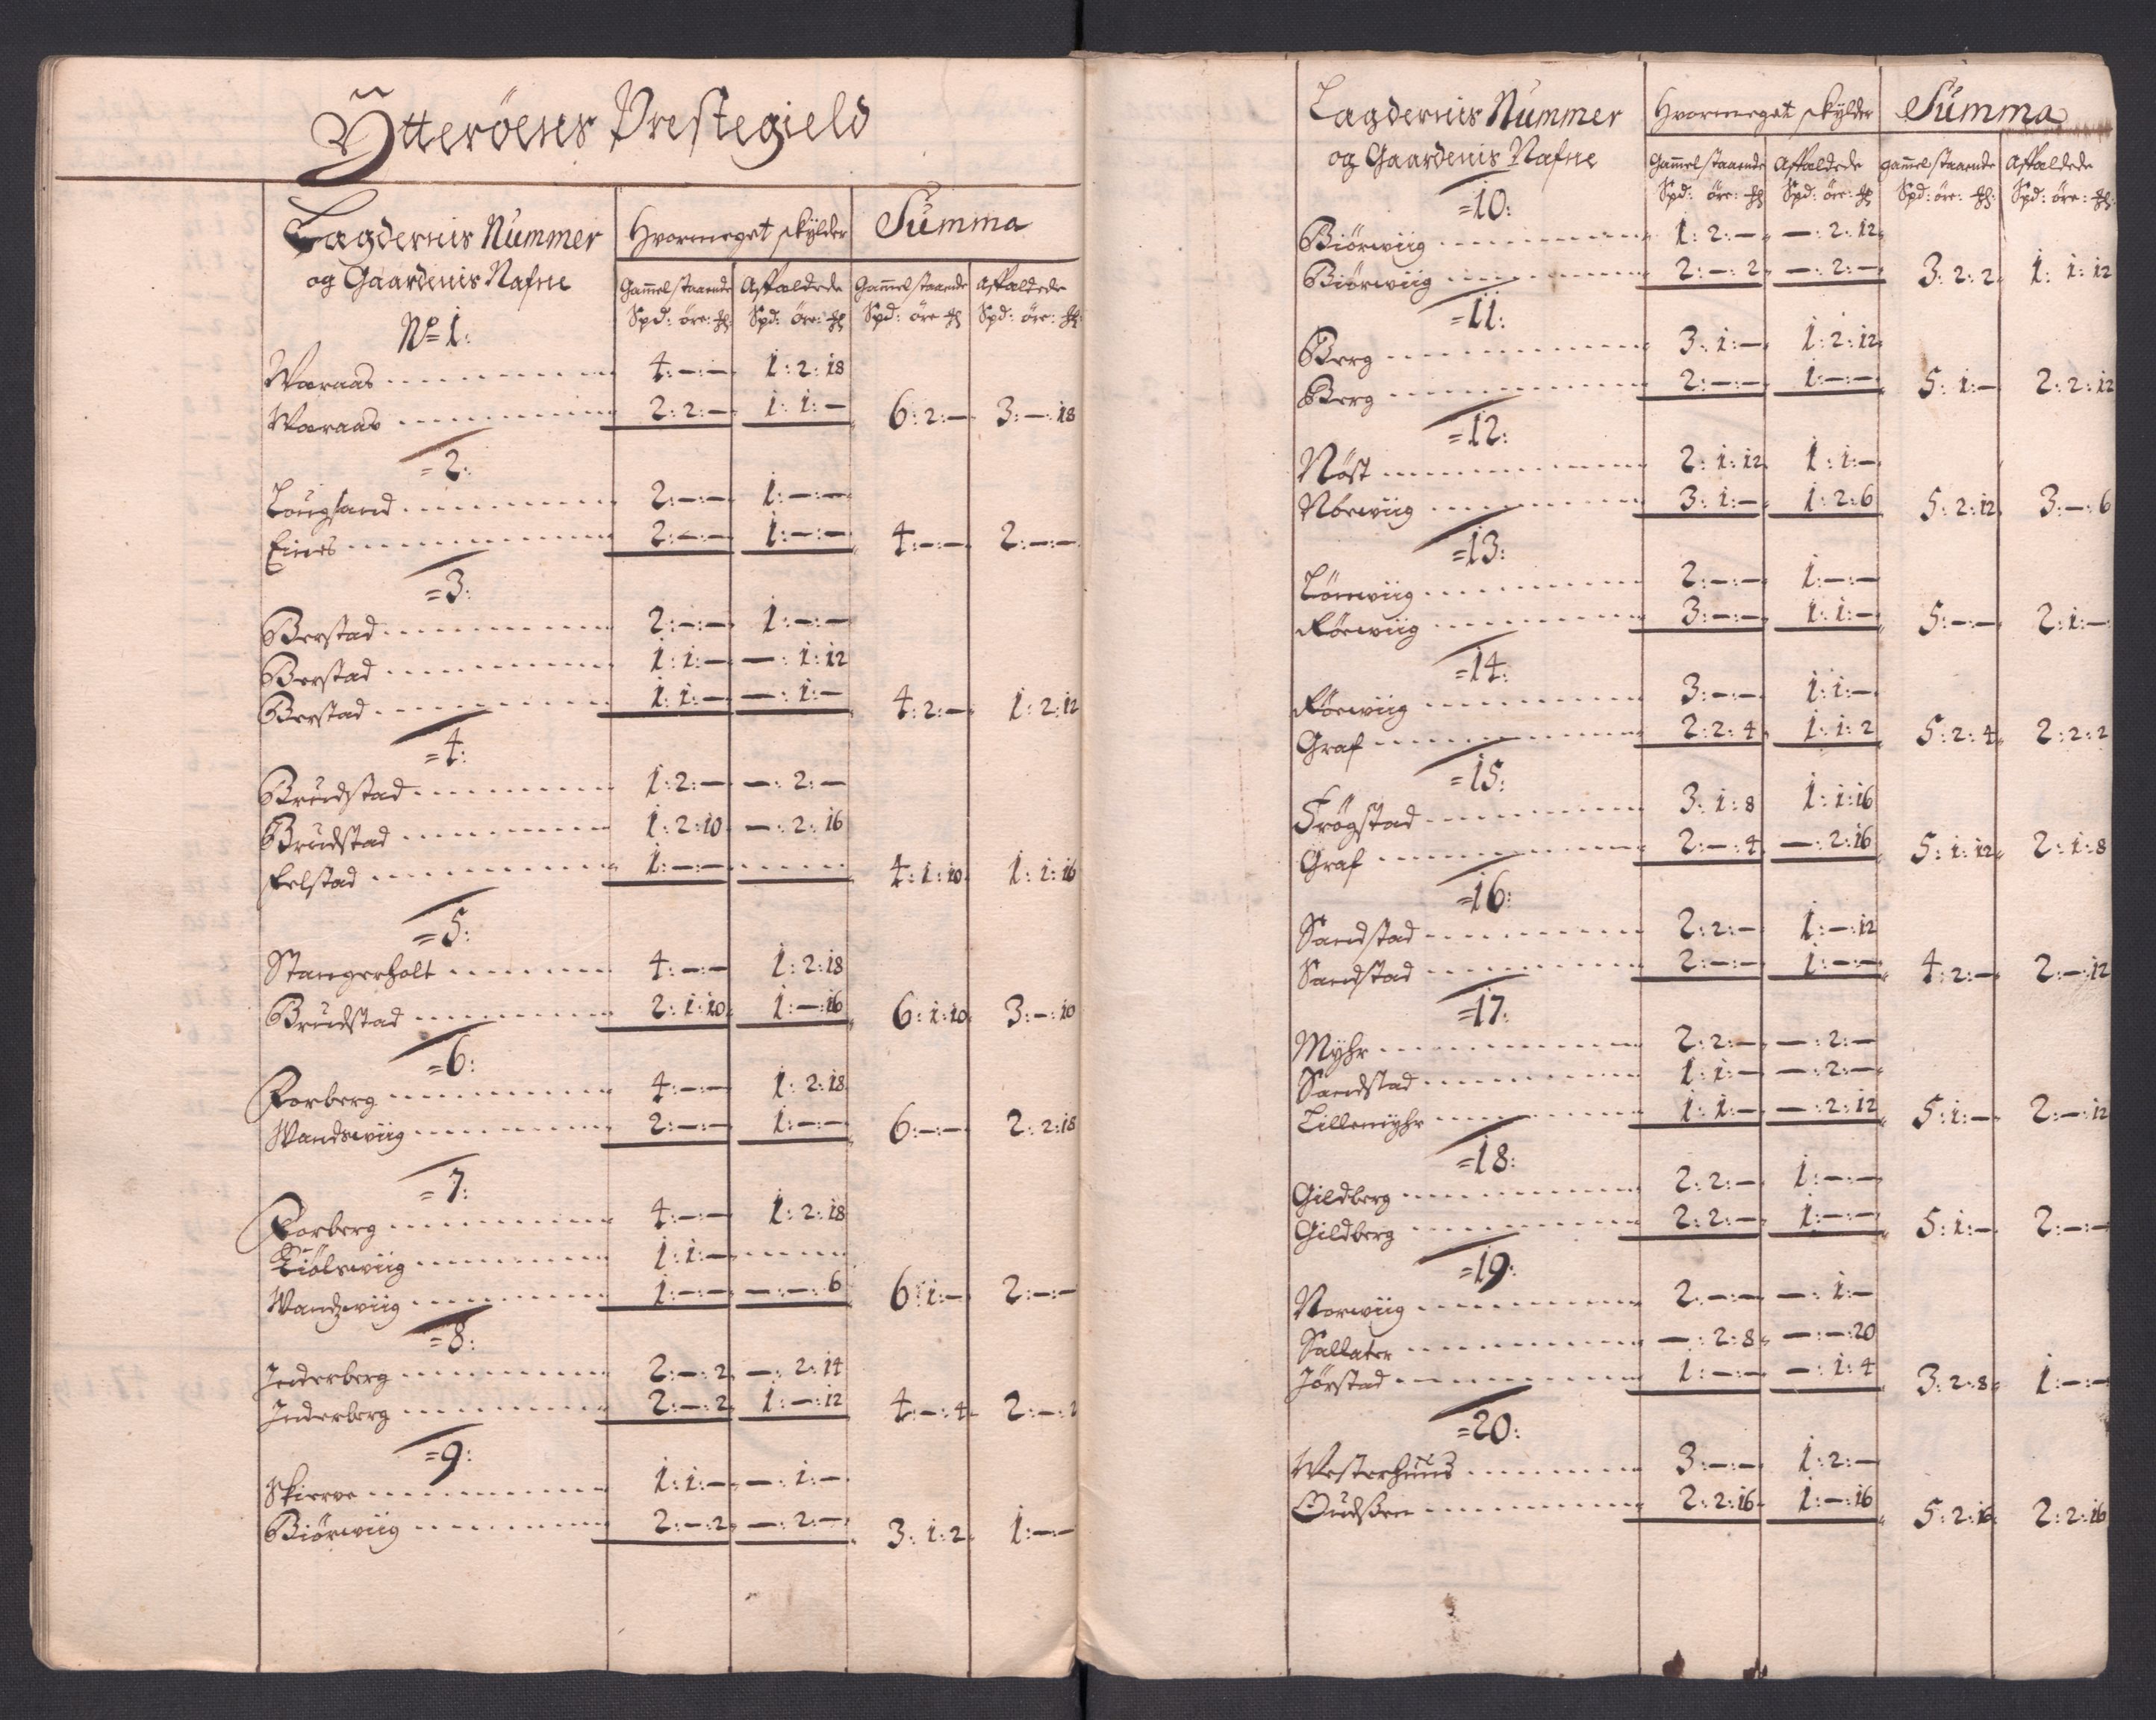 Ytterøens Prestegield
Lagdernis Nummer Hvormeget skylder Summa
og Gaardenis Nafne Gammelstaaende Affældede Gammelstaaende Affældede
Spd: öre: ℔: Spd: öre: ℔ Spd: öre ℔ Spd: öre: ℔:
No 1:
Waraas 4:—:— 1:2:18
Waraas 2:2:— 1:1:— 6:2:— 3:—:18
=2:
Lougsand 2:—:— 1:—:—
Eines 2:—:— 1:—:— 4:—:— 2:—:—
=3:
Berstad 2:—:— 1:—:—
Berstad 1:1:— —:1:12
Berstad 1:1:— —:1:— 4:2:— 1:2:12
=4:
Brudstad 1:2:— —:2:—
Brudstad 1:2:10 —:2:16
Felstad 1:—:— 4:1:10 1:1:16
=5:
Stangerholt 4:—:— 1:2:18
Brudstad 2:1:10 1:—:16 6:1:10 3:—:10
=6:
Forberg 4:—:— 1:2:18
Wandswiig 2:—:— 1:—:— 6:—:— 2:2:18
=7:
Forberg 4:—:— 1:2:18
Kiölswiig 1:1:—
Wandzwiig 1:—:— —:—:6 6:1:— 2:—:—
=8:
Inderberg 2:—:2 —:2:14
Inderberg 2:—:2 1:—:12 4:—:4 2:—:2
=9:
Skierve 1:1:— —:1:—
Biörwiig 2:—:2 —:2:— 3:1:2 1:—:—
Lagdernis Nummer Hvormeget skylder Summa
og Gaardenis Nafne Gammelstaaende Affældede gammelstaaende Affældede
Spd: öre: ℔ Spd: öre: ℔ Spd: öre: ℔: Spd: öre: ℔:
=10:
Biörwiig 1:2:— —:2:12
Biörwiig 2:—:2 —:2:— 3:2:2 1:1:12
=11:
Berg 3:1:— 1:2:12
Berg 2:—:— 1:—:— 5:1:— 2:2:12
=12:
Nöst 2:1:12 1:1:—
Nörwiig 3:1:— 1:2:6 5:2:12 3:—:6
=13:
Lönwiig 2:—:— 1:—:—
Rörwiig 3:—:— 1:1:— 5:—:— 2:1:—
=14:
Rörwiig 3:—:— 1:1:—
Graf 2:2:4 1:1:2 5:2:4 2:2:2
=15:
Frögstad 3:1:8 1:1:16
Graf 2:—:4 —:2:16 5:1:12 2:1:8
=16:
Sandstad 2:2:— 1:—:12
Sandstad 2:—:— 1:—:— 4:2:— 2:—:12
=17:
Myhr 2:2:— —:2:—
Sandstad 1:1:— —:2:—
Lillemyhr 1:1:— —:2:12 5:1:— 2:—:12
=18:
Gildberg 2:2:— 1:—:—
Gildberg 2:2:— 1:—:— 5:1:— 2:—:—
=19:
Norwiig 2:—:— —:1:—
Sallater —:2:8 —:—:20
Jörstad 1:—:— —:1:4 3:2:8 1:—:—
=20:
Westerhuus 3:—:— 1:2:—
Oudßen 2:2:16 1:—:16 5:2:16 2:2:16